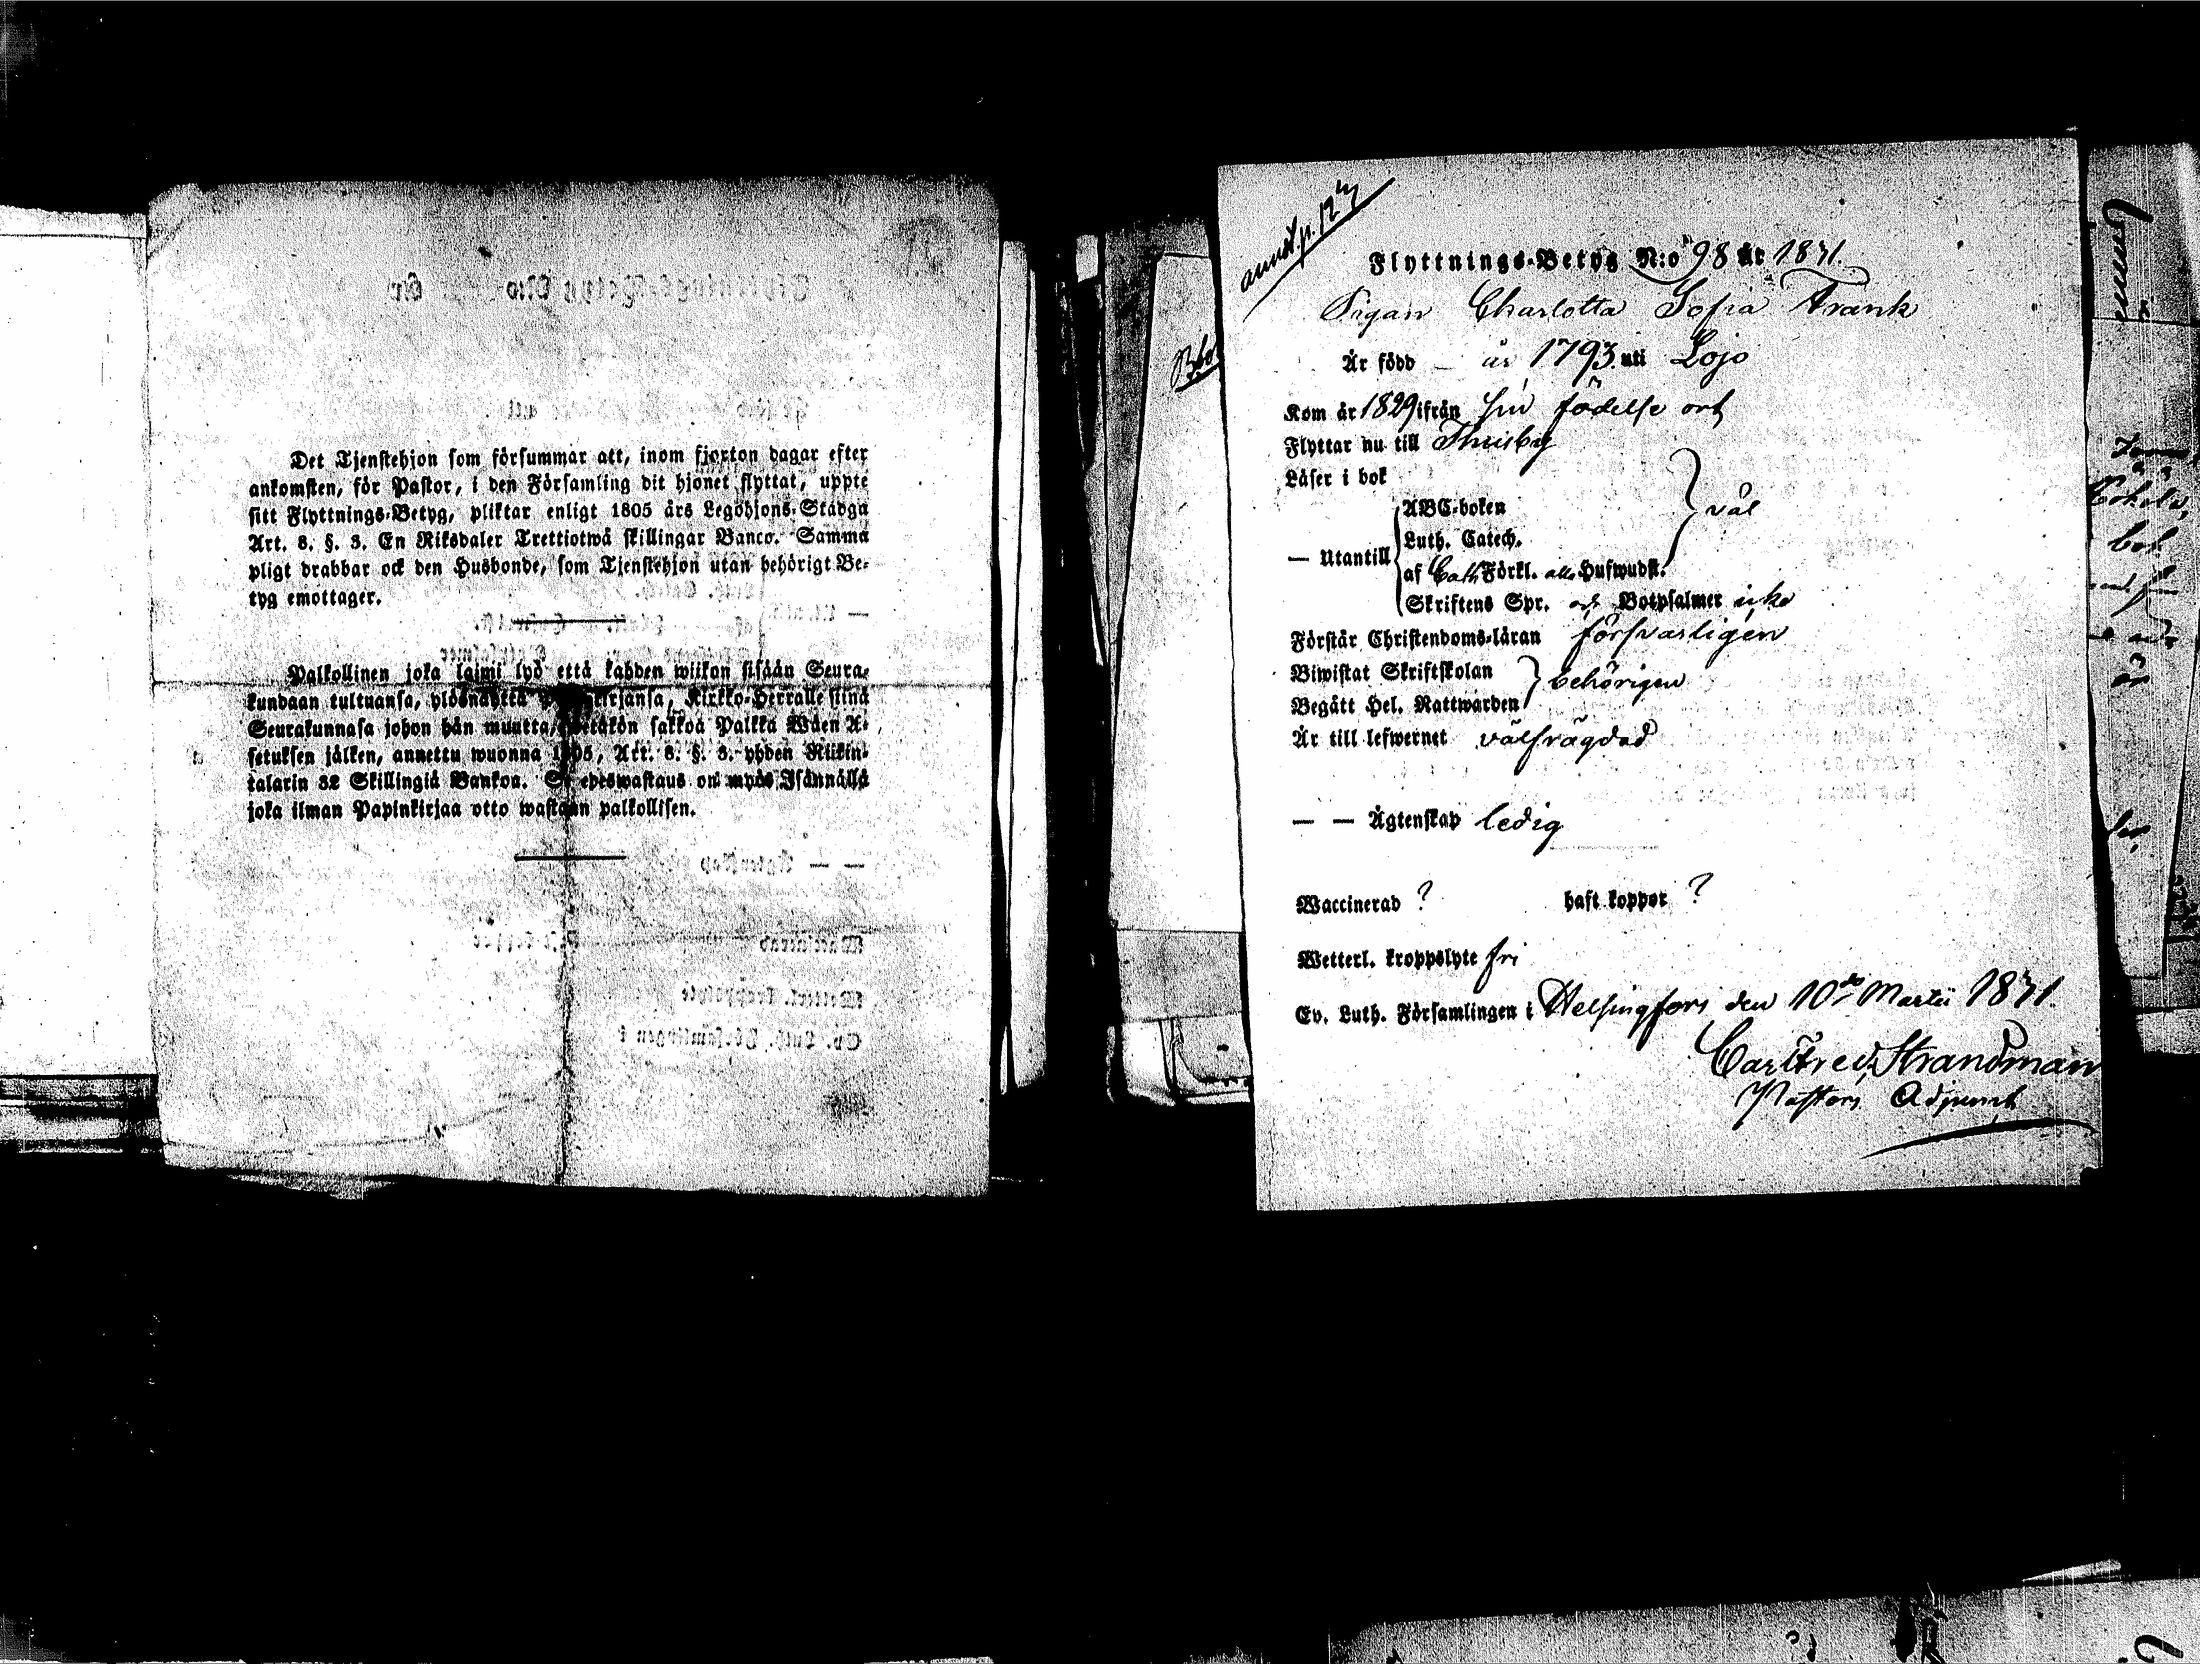 Det Tjenstehjon som försummar att, inom fjorton dagar efter
ankomsten, för Pastor, i den Församling dit hjonet flyttat, uppte
sitt Flyttnings-Betyg, pliktar enligt 1805 års Legohjons-Stadga
Art. 8. §. 3. En Riksdaler Trettiotwå skillingar Banco. Samma
pligt drabbar ock den Husbonde, som Tjenstehjon utan behörigt Be-
tyg emottager.
Palkollinen joka laimi lyö että kahden wiikon sisään Seura-
kundaan tultuansa, ylösnäyttä Kirkko-Herralle siinä
Seurakunnasa johon hän muutta, wetäkön sakkoa Palkka Wäen A-
setuksen jälken, annettu wuonna 1805, Art. 8. §. 3. yhden Riikin-
talarin 32 Skillingiä Bankoa. edeswastaus on myös Isännällä
joka ilman Papinkirjaa otto wastaan palkollisen.
annot. p. 127
Flyttnings-Betyg N:o 98 År 1831.
Pigan Charlotta Sofia Frank
Är född — år 1793. uti Lojo
Kom år 1829 ifrån sin födelse ort
Flyttar nu till Thusby
Läser i bok
ABC-boken
wäl
Luth. Catech.
— Utantill
af Cath Förkl. alla Hufwudst.
Skriftens Spr. och Botpsalmer icke
Förstår Christendoms-läran försvarligen
Biwistat Skriftskolan
behörigen
Begått Hel. Nattwarden
Är till lefwernet välfrägdad
— — Ägtenskap ledig
Waccinerad ? haft koppor ?
Wetterl. kroppslyte fri
Ev. Luth. Församlingen i Helsingfors den 10de Martii 1831.
Carl Fred. Strandman
Pastors Adjunct